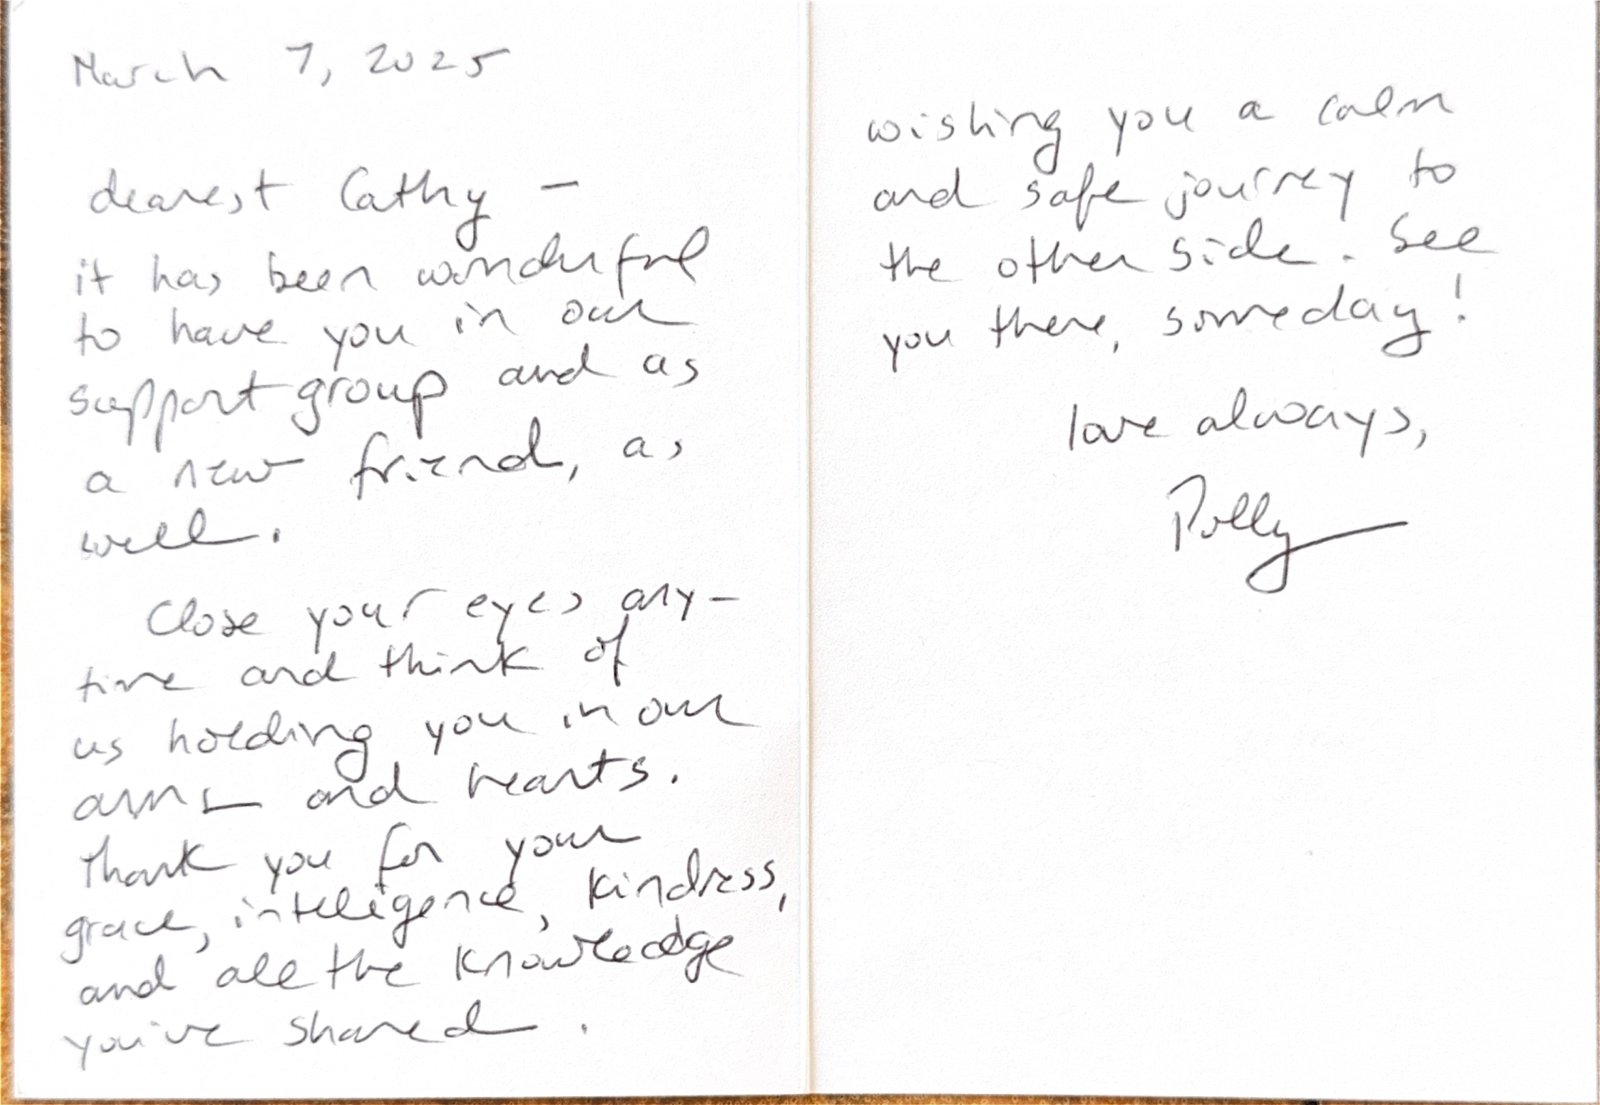 March 7, 2025
dearest Cathy –
it has been wonderful
to have you in our
support group and as
a new friend, as
well.
Close your eyes any-
time and think of
us holding you in our
arms and hearts.
Thank you for your
grace, intelligence, kindness,
and all the knowledge
you've shared.
wishing you a calm
and safe journey to
the other side. See
you there, someday!
love always,
Polly